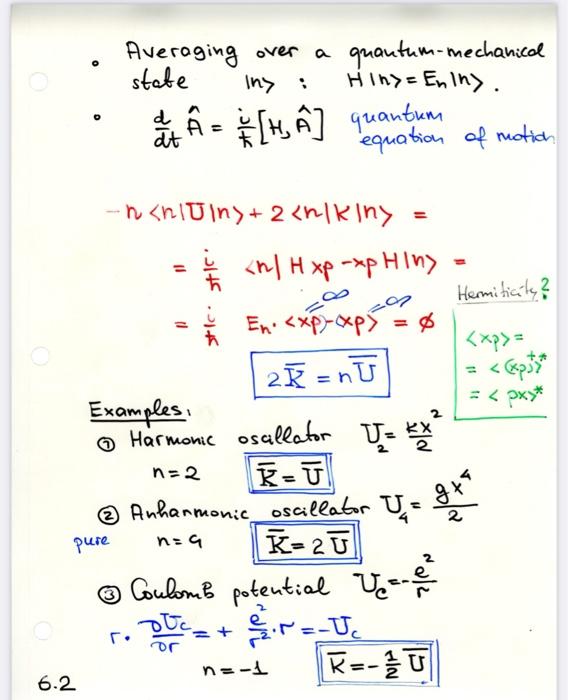 • Averaging over a quantum-mechanical
state |n> : H|n> = En|n>.
• d/dt Â = i/ħ [H, Â] quantum
equation of motion
-n <n|U|n> + 2 <n|K|n> =
= i/ħ <n| H xp - xp H|n> =
Hermiticity?
=∞ =∞
= i/ħ En·<xp>-<xp> = ∅
<xp> =
= <(xp)†>*
= <px>*
2K̅ = nU̅
Examples:
① Harmonic oscillator U₂ = kx²/2
n=2 K̅ = U̅
② Anharmonic oscillator U₄ = gx⁴/2
pure n=4 K̅ = 2U̅
③ Coulomb potential Uc = -e²/r
r· ∂Uc/∂r = + e²/r² · r = -Uc
n=-1 K̅ = -1/2 U̅
6.2